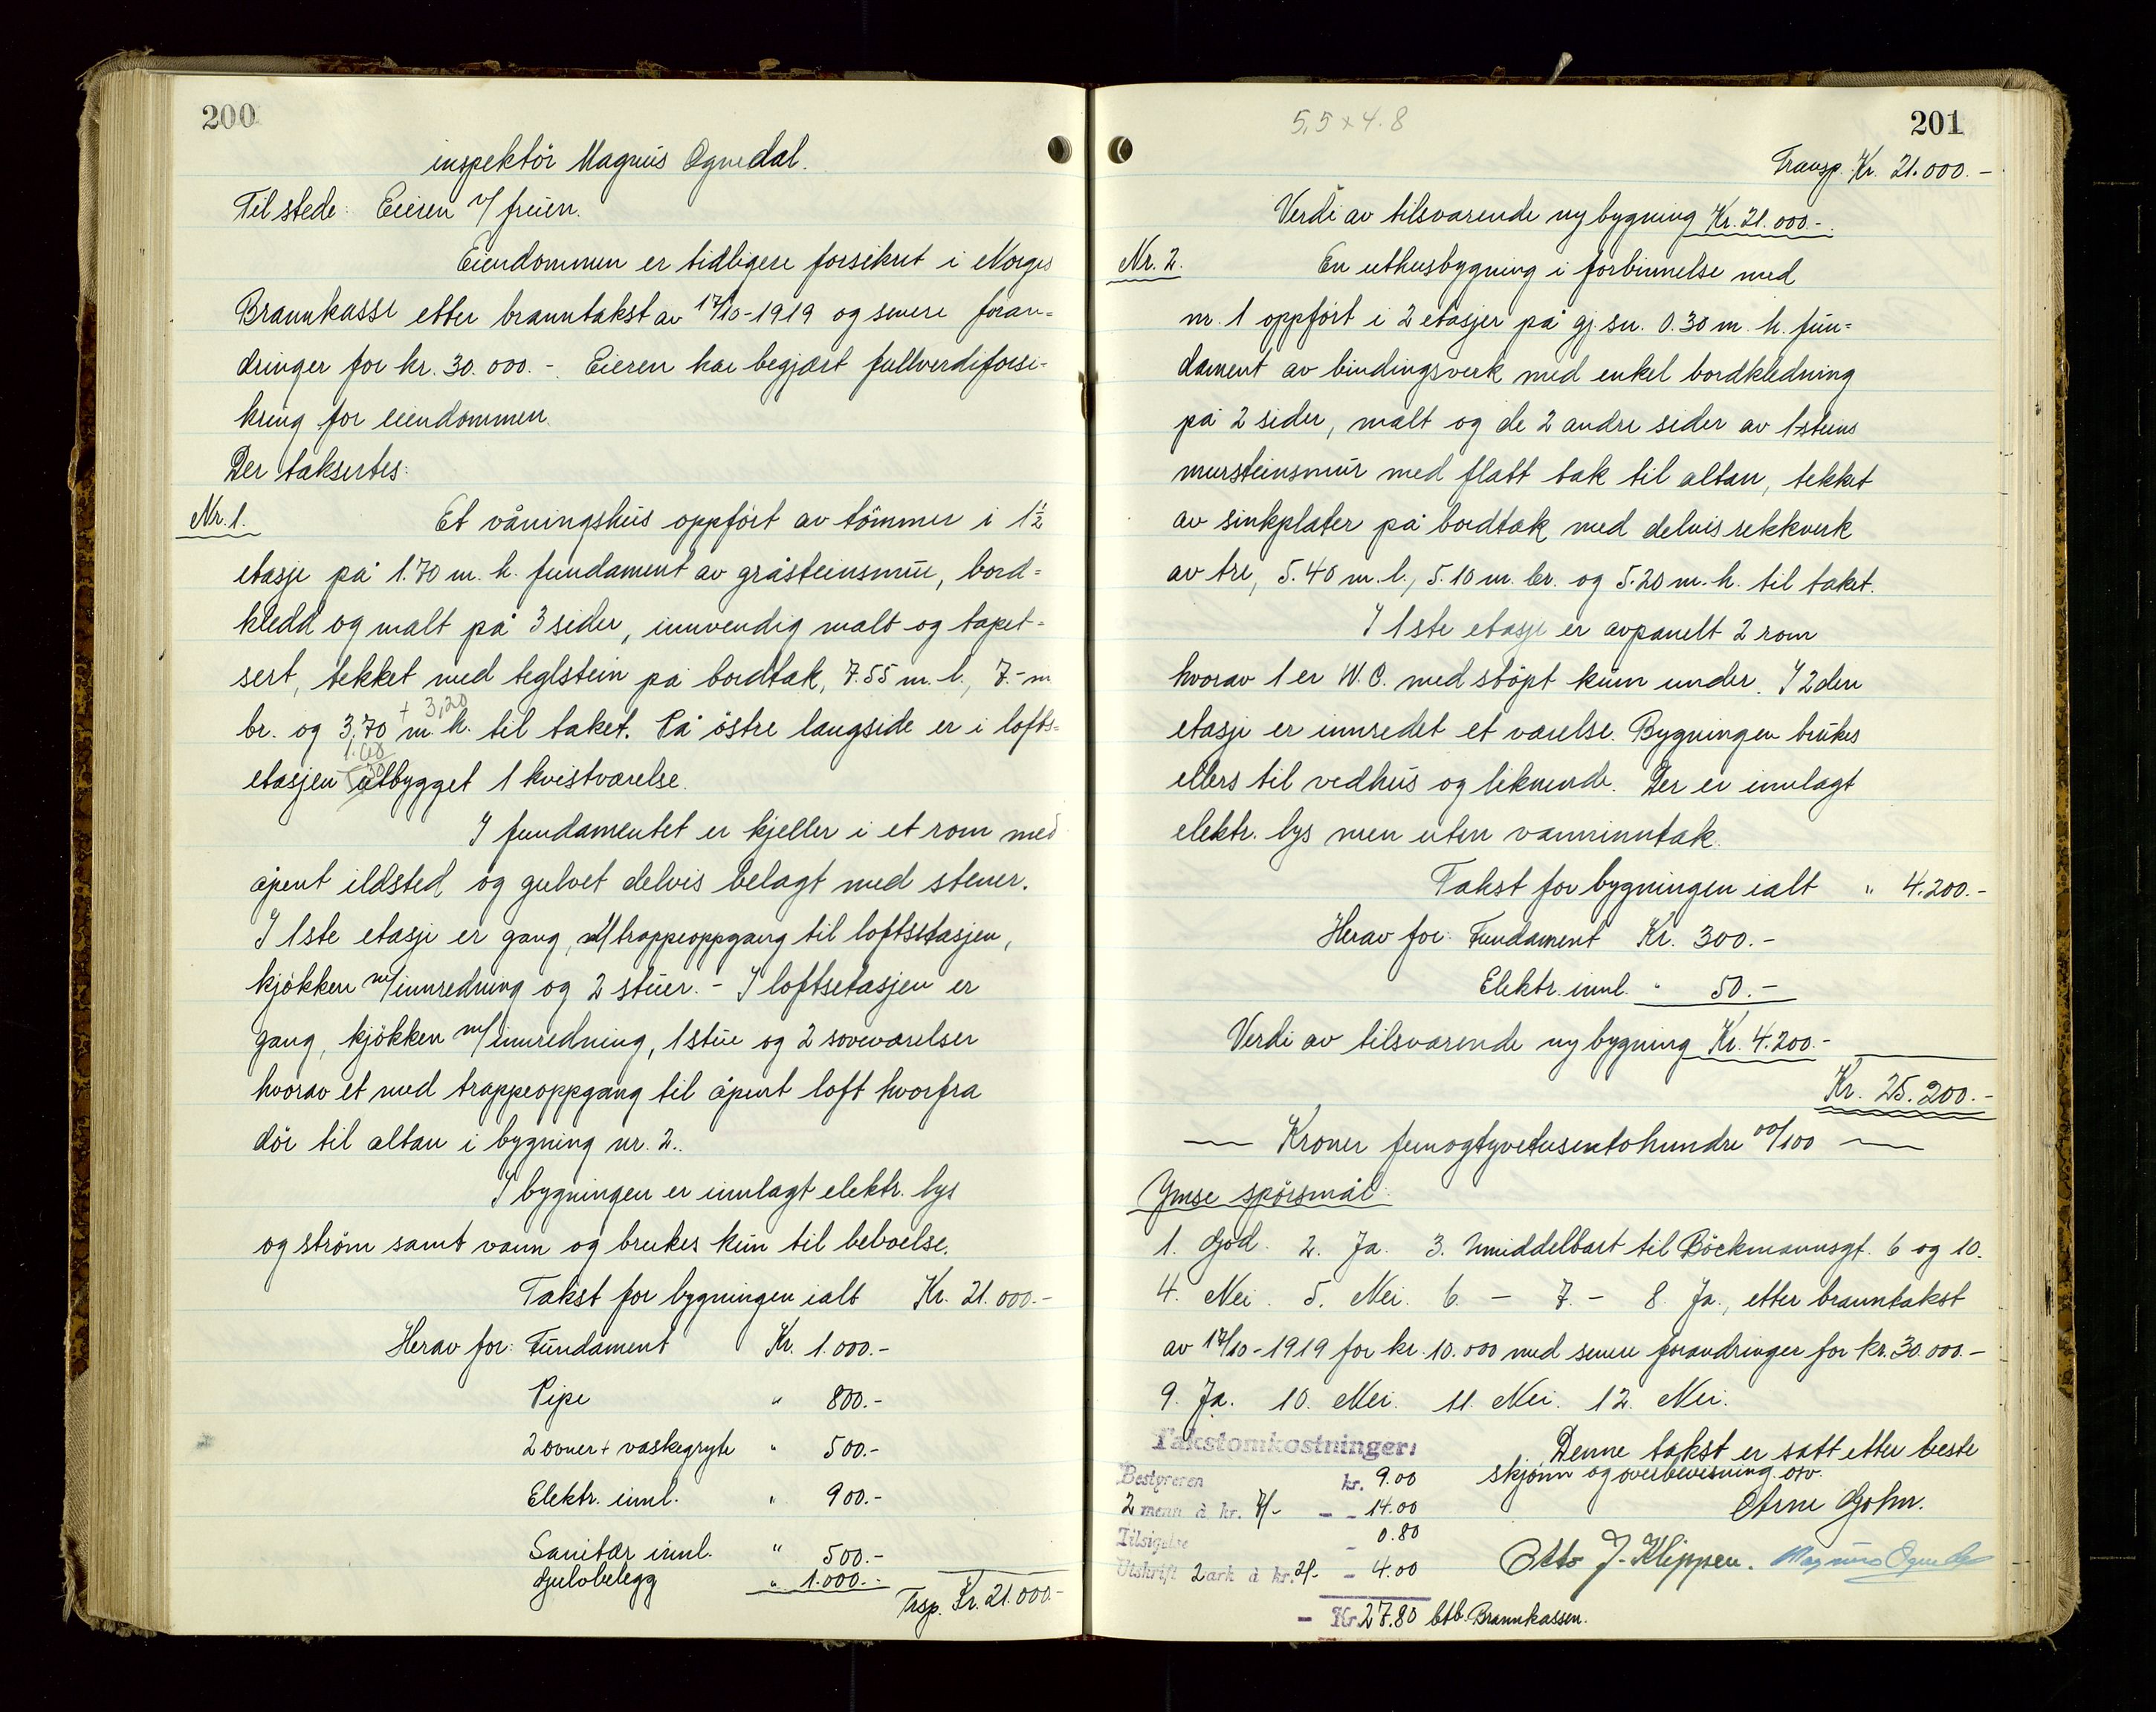 200
inspektör Magnus Ognedal.
Til stede: Eieren v/ fruen.
Eiendommen er tidligere forsikret i Norges
Brannkasse etter branntakst av 17/10-1919 og senere foran=
dringer for kr. 30.000.- Eieren har begjært fullverdiforsi-
kring for eiendommen.
Der takseres:
Nr. 1. Et våningshus oppfört av tömmer i 1½
etasje på 1.70 m. h. fundament av gråsteinsmur, bord=
kledd og malt på 3 sider, innvendig malt og tapet-
sert, tekket med teglstein på bordtak, 7.55 m. l., 7.- m
+ 3,20
br. og 3,70 m. h. til taket. På östre langside er i lofts=
etasjen utbygget 1 kvistværelse.
I fundamentet er kjeller i et rom med
åpent ildsted og gulvet delvis belagt med stener.
I 1ste etasje er gang, m/trappeoppgang til loftsetasjen,
kjökken m/innredning og 2 stuer. - I loftsetasjen er
gang, kjökken m/innredning, 1 stue og 2 soveværelser
hvorav et med trappeoppgang til åpent loft hvorfra
dör til altan i bygning nr. 2..
I bygningen er innlagt elektr. lys
og ström samt vann og brukes kun til beboelse.
Takst for bygningen ialt Kr. 21.000.-
Herav for: Fundament Kr. 1.000.-
Pipe " 800.-
2 ovner + vaskegryte " 500.-
Elektr. innl. " 900.-
Sanitær innl. " 500.-
Gulvbelegg " 1.000.-
Trsp. Kr. 21.000.-
5,5 x 4.8
201
Transp. Kr. 21.000.-
Verdi av tilsvarende ny bygning Kr. 21.000.-
Nr. 2. En uthusbygning i forbinnelse med
nr. 1 oppfört i 2 etasjer på gj.sn. 0.30 m. h. fun=
dament av bindingsverk med enkel bordkledning
på 2 sider, malt og de 2 andre sider av 1 steins
mursteinsmur med flatt tak til altan, tekket
av sinkplater på bordtak med delvis rekkverk
av tre, 5.40 m. l., 5.10 m. br. og 5.20 m. h. til taket.
I 1ste etasje er avpanelt 2 rom
hvorav 1 er W.C. med stöpt kum under. I 2den
etasje er innredet et værelse. Bygningen brukes
ellers til vedhus og liknende. Der er innlagt
elektr. lys men uten vanninntak.
Takst for bygningen ialt " 4.200.-
Herav for: Fundament Kr. 300.-
Elektr. innl. " 50.-
Verdi av tilsvarende ny bygning Kr. 4.200.-
Kr. 25.200.-
— Kroner femogtyvetusentohundre 00/100 —
Ymse spörsmål:
1. God. 2. Ja. 3. Umiddelbart til Böckmannsgt. 6 og 10.
4. Nei. 5. Nei. 6. - 7. - 8. Ja, etter branntakst
av 17/10-1919 for kr. 10.000 med senere forandringer for kr. 30.000.-
9. Ja. 10. Nei. 11. Nei. 12. Nei.
Denne takst er satt etter beste
skjönn og overbevisning osv.
Arne Gohn.
Otto J. Klippen. Magnus Ognedal
Takstomkostninger:
Bestyreren kr. 9.00
2 menn à kr. 7/- - - 14.00
Tilsigelse - 0.80
Utskrift 2 ark à kr. 2/- - 4.00
- Kr. 27.80 btb. Brannkassen.